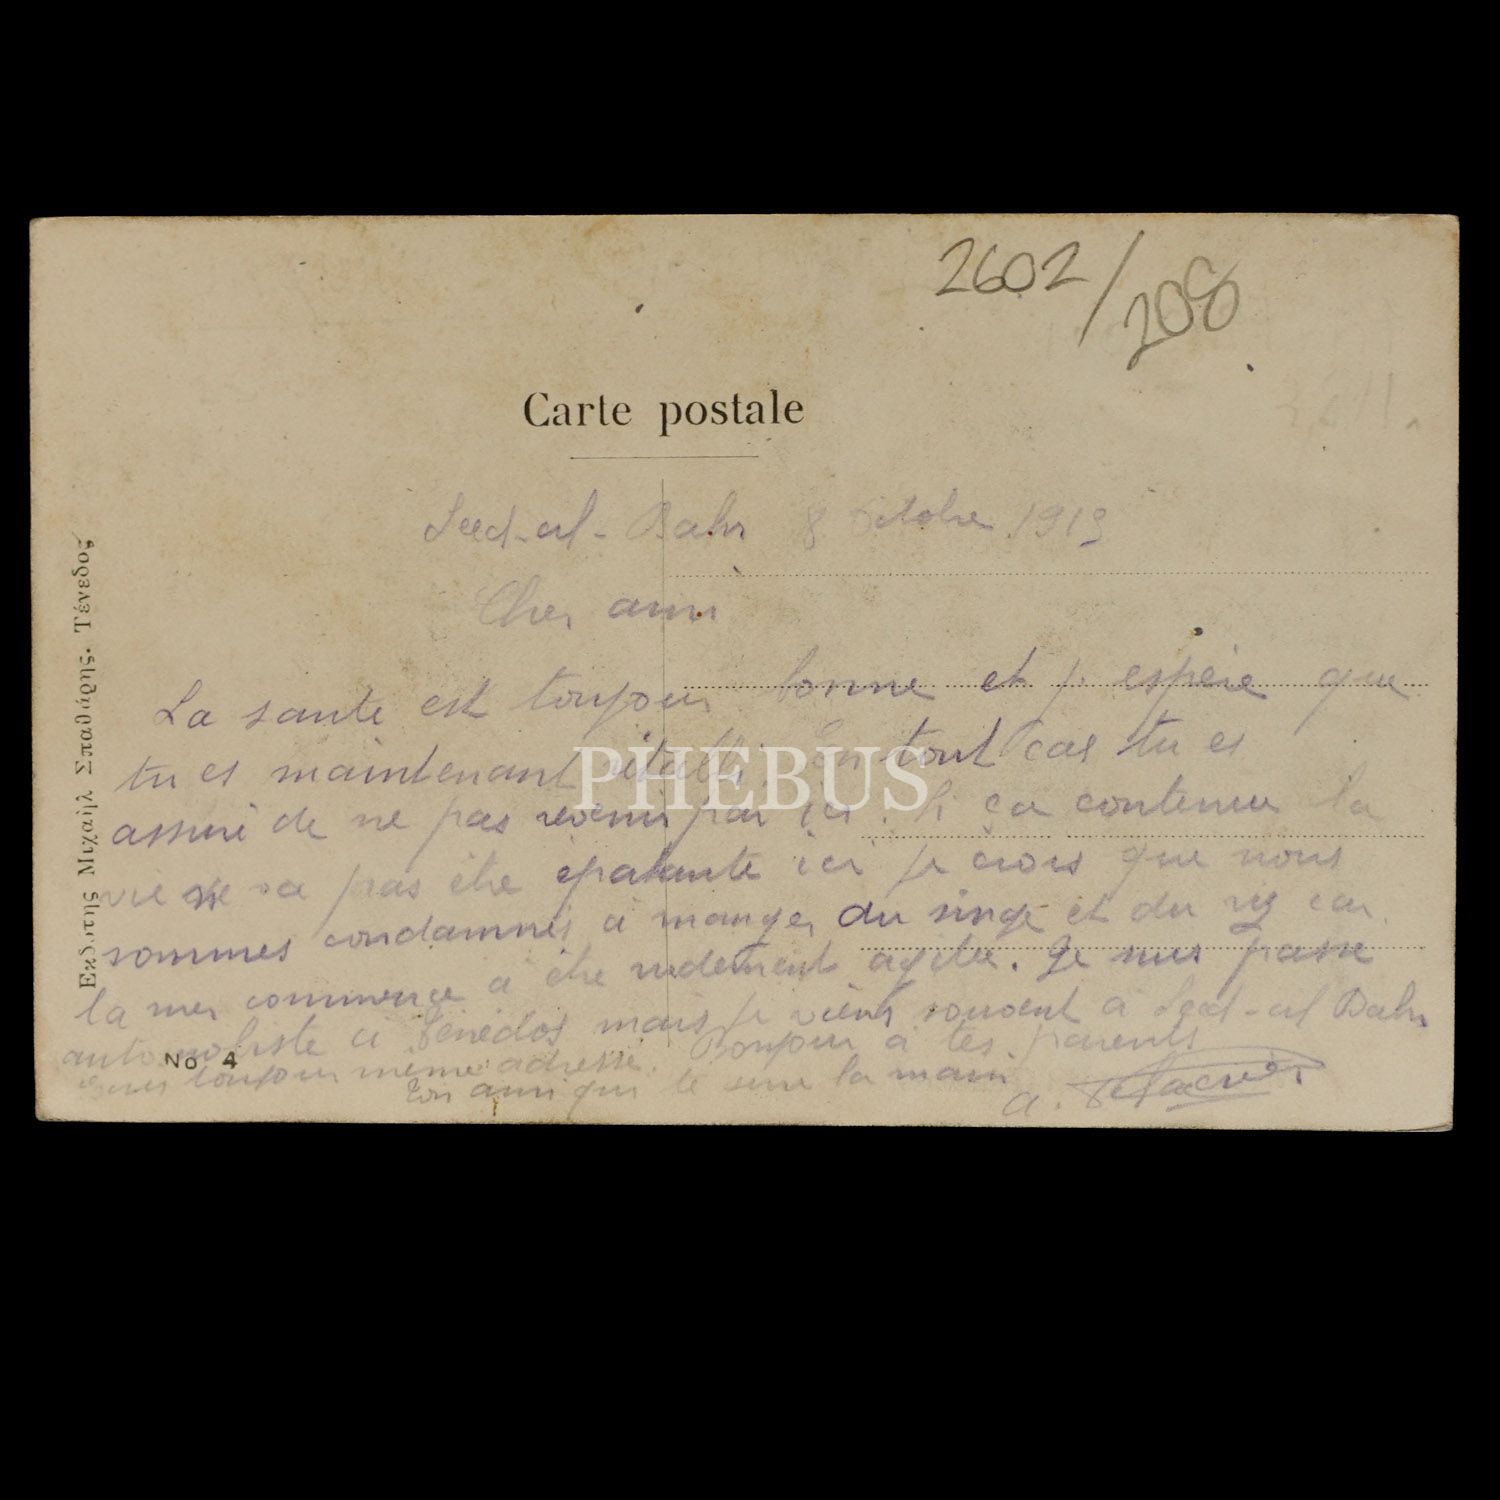 2602/208
Carte postale
Sed-ul-Bahr 8 Octobre 1915
Cher ami
La sante est toujour bonne et j. espère que
tu es maintenant établi. En tout cas tu es
assuré de ne pas revenir par ici. Si ça continue la
vie ne va pas être épatante ici je crois que nous
sommes condamnés à manger du singe et du riz car
la mer commence a être rudement agitée. Je suis passé
automobiliste à Ténédos mais je vient souvent à Sed-ul Bahr
toujour même adresse. Bonjour à tes parents
Ton ami qui te serre la main
a.
Εκδότης Μιχαήλ Σπαθάρης. Τένεδος
No 4
PHEBUS